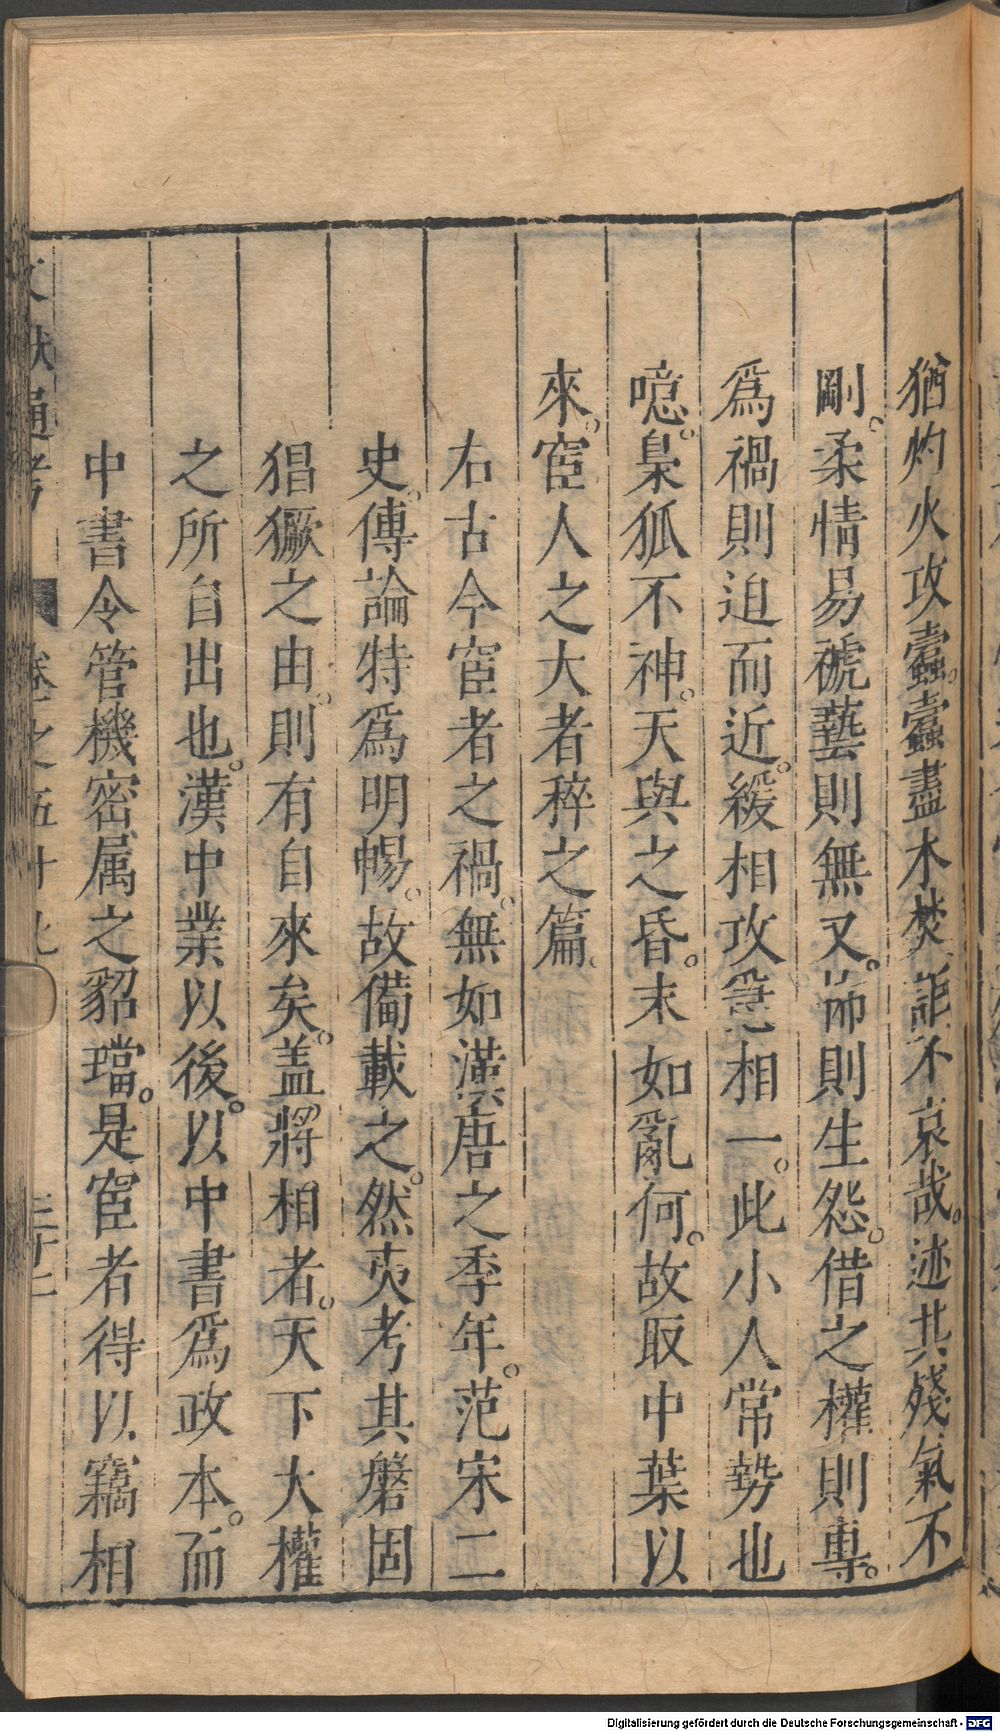 猶灼火攻蠹。蠹盡木焚。詎不哀哉。迹其殘氣不
剛。柔情易禠藝則無又。怖則生怨。借之權則專。
爲禍則迫而近。緩相攻。急相一。此小人常勢也
噫。梟狐不神。天與之昏。末如亂何。故取中葉以
來。宦人之大者稡之篇。
右古今宦者之禍。無如漢唐之季年。范宋二
史。傳論特爲明暢。故備載之。然夷考其磐固
猖獗之由。則有自來矣。盖將相者。天下大權
之所自出也。漢中業以後。以中書爲政本。而
中書令管機密属之貂璫。是宦者得以竊相
文獻通考 卷之五十九 三十二
Digitalisierung gefördert durch die Deutsche Forschungsgemeinschaft - DFG